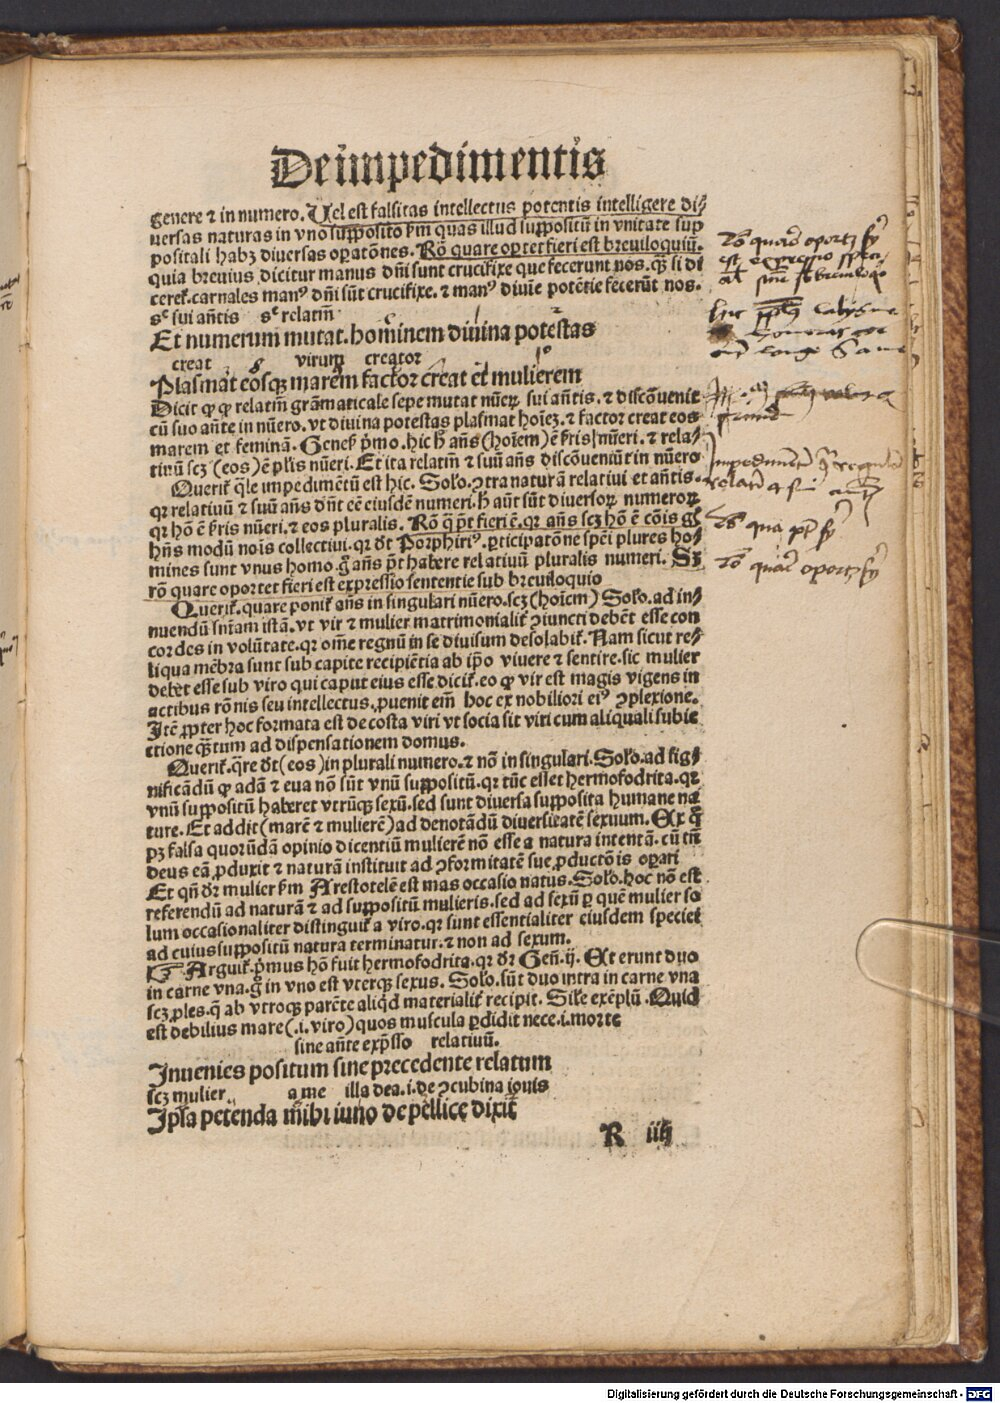 De impedimentis
genere ⁊ in numero. Uel est falsitas intellectus potentis intelligere di⸗
uersas naturas in vno supposito ẜm quas illud suppositũ in vnitate sup
positali habꝫ diuersas oꝑatões. Rõ quare oꝑtet fieri est breuiloquiũ.
quia breuius dicitur manus dñi sunt crucifixe que fecerunt nos. qᷓꝫ si di
ceret̃. carnales manꝰ dñi sũt crucifixe. ⁊ manꝰ diuie potẽtie fecerũt nos.
sꝫ sui añtis sꝫ relatiũ
Et numerum mutat. hominem diuina potestas
creat virum creator
Plasmat eosqꝫ marem factor creat et mulierem
Dicit ꝙ ꝙ relatiũ grãmaticale sepe mutat nũeꝝ sui añtis. ⁊ discõuenit
cũ suo añte in nũero. vt diuina potestas plasmat hoĩeꝫ. ⁊ factor creat eos
marem et feminã. Geneẜ pͥmo. hic ħ añs (hoĩem) ẽ ẜris nũeri. ⁊ rela⸗
tiuũ scꝫ (eos) ẽ pl̃is nũeri. Et ita relatiũ ⁊ suũ añs discõueniũt in nũero
Querit̃ q̃le impedimẽtũ est hic. Solo. ꝯtra naturã relatiui et añtis.
qꝛ relatiuũ ⁊ suũ añs dñt eẽ eiusdẽ numeri. ħ aũt sũt diuersoꝝ numeroꝝ
qꝛ hõ ẽ ẜris nũeri. ⁊ eos pluralis. Rõ q̃ pͥt fieri ẽ. qꝛ añs scꝫ hõ ẽ cõis gñ
hñs modũ nois collectiui. qꝛ dt̃ Porphiriꝰ. ꝑticipatõne spẽi plures ho⸗
mines sunt vnus homo. gͥ añs pͥt habere relatiuũ pluralis numeri. Sꝫ
rõ quare oportet fieri est expressio sententie sub breuiloquio
Querit̃. quare ponit̃ añs in singulari nũero. scꝫ (hoĩem) Solo. ad in⸗
nuendũ sñiam istã. vt vir ⁊ mulier matrimonialit̃ ꝯiuncti debẽt esse con
cordes in volũtate. qꝛ om̃e regnũ in se diuisum desolabit̃. Nam sicut re⸗
liqua mẽbra sunt sub capite recipiẽtia ab ipo viuere ⁊ sentire. sic mulier
debet esse sub viro qui caput eius esse dicit̃. eo ꝙ vir est magis vigens in
actibus rõnis seu intellectus. ꝓuenit em̃ hoc ex nobiliori eiꝰ ꝯplexione.
Itẽ ꝓpter hoc formata est de costa viri vt socia sit viri cum aliquali subie
ctione qᷓꝫtum ad dispensationem domus.
Querit̃. q̃re dt̃ (eos) in plurali numero. ⁊ nõ in singulari. Solo. ad sig⸗
nificãdũ ꝙ adã ⁊ eua nõ sũt vnũ suppositũ. qꝛ tũc esset hermofodrita. qꝛ
vnũ suppositũ haberet vtrũqꝫ sexũ. sed sunt diuersa supposita humane na
ture. Et addit (marẽ ⁊ mulierẽ) ad denotãdũ diuersitatẽ sexuum. Ex q̃
pꝫ falsa quorũdã opinio dicentiũ mulierẽ nõ esse a natura intentã. cũ tñ
deus eã ꝓduxit ⁊ naturã instituit ad ꝯformitatẽ sue ꝓductõis oꝑari
Et qñ dr̃ mulier ẜm Arestotelẽ est mas occasio natus. Solo. hoc nõ est
referendũ ad naturã ⁊ ad suppositũ mulieris. sed ad sexũ ꝑ quẽ mulier so
lum occasionaliter distinguit̃ a viro. qꝛ sunt essentialiter eiusdem speciei
ad cuius suppositũ natura terminatur. ⁊ non ad sexum.
Arguit̃. pͥmus hõ fuit hermofodrita. qꝛ dr̃ Geñ. ij. Et erunt duo
in carne vna. g̃ in vno est vterqꝫ sexus. Solo. sũt duo intra in carne vna
scꝫ ꝓles. q̃ ab vtroqꝫ parẽte aliqd materialit̃ recipit. Sile exẽplũ. Quid
est debilius mare (.i. viro) quos muscula ꝑdidit nece. i. morte
sine añte exp̃sso relatiuũ.
Inuenies positum sine precedente relatum
scꝫ mulier. a me illa dea. i. de ꝯcubina iouis
Ipsa petenda mihi iuno de pellice dixit
R iiij